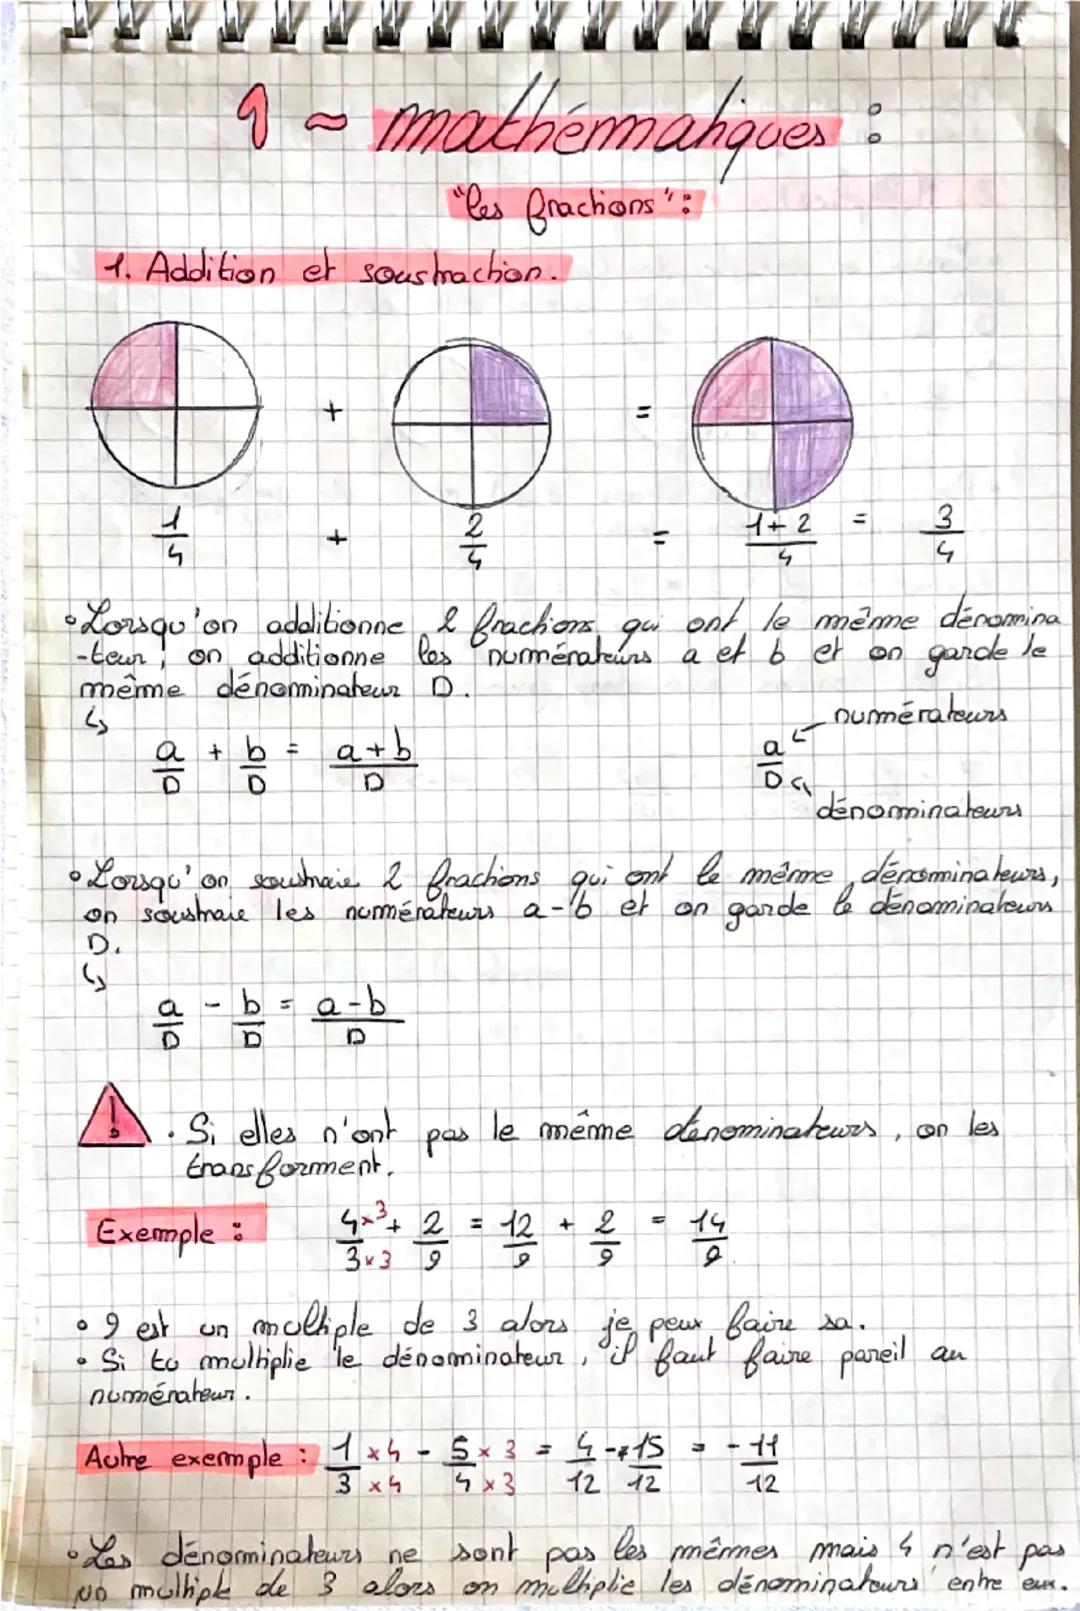 1 ~ mathémmatiques :
"les fractions" :
1. Addition et soustraction.
+ =
1/4 + 2/4 = 1+2/4 = 3/4
• Lorsqu'on additionne 2 fractions qui ont le même dénomina
-teur, on additionne les numérateurs a et b et on garde le
même dénominateur D.
↳
numérateurs
a/D + b/D = a+b/D a/D
dénominateurs
• Lorsqu'on soustraie 2 fractions qui ont le même dénominateurs,
on soustraie les numérateurs a-b et on garde le dénominateurs
D.
↳
a/D - b/D = a-b/D
! • Si elles n'ont pas le même dénominateurs, on les
transforment.
Exemple : 4×3/3×3 + 2/9 = 12/9 + 2/9 = 14/9
• 9 est un multiple de 3 alors je peux faire sa.
• Si tu multiplie le dénominateur, il faut faire pareil au
numérateur.
Autre exemple : 1×4/3×4 - 5×3/4×3 = 4/12 - 15/12 = -11/12
• Les dénominateurs ne sont pas les mêmes mais 4 n'est pas
un multiple de 3 alors on multiplie les dénominateurs entre eux.